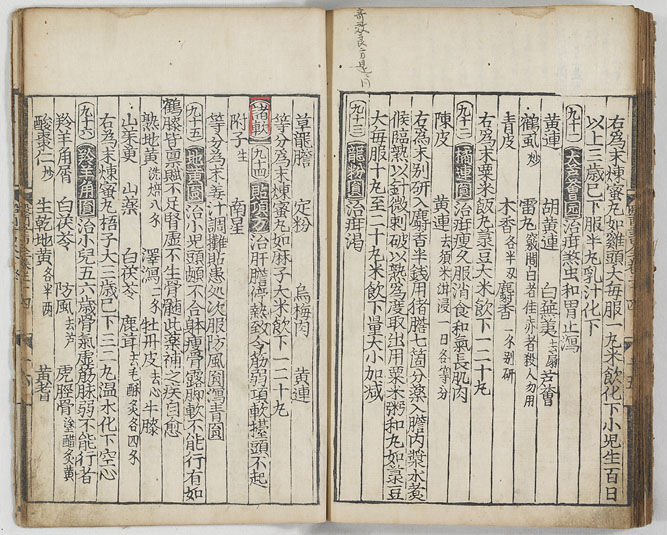 右為末煉蜜丸如雞頭大每服一丸米飲化下小児生百日
以上三歲已下服半丸乳汁化下
九十一 大芦薈圓 治疳殺虫和胃止瀉
黃連 胡黃連 白蕪荑 去扇 芦薈
鶴虱 炒 雷丸 竅間白者佳赤者殺人勿用
青皮 木香 各半兩 麝香 一分別研
右為末粟米飯丸菉豆大米飲下一二十丸
九十二 橘連圓 治疳瘦久服消食和氣長肌肉
陳皮 黃連 去須米泔浸一日各等分
右為末別研入麝香半錢用猪膽七箇分藥入膽內漿水煮
候臨熟以針微刺破以熟為度取出用粟米粥和丸如菉豆
大每服十丸至二十丸米飲下量大小加減
九十三 龍粉圓 治疳渴
草龍膽 定粉 烏梅肉 黃連
等分為末煉蜜丸如麻子大米飲下一二十丸
諸軟 九十四 貼項方 治肝膽停熱致令筋弱項軟擡頭不起
附子 生 南星
等分為末姜汁調攤貼患処次服防風圓瀉青圓
九十五 地黃圓 治小児頭顱不合躰瘦骨露脚軟不能行有如
鶴膝皆稟賦不足腎虛不生骨髓此藥補之疾自愈
熟地黃 洗焙八分 澤瀉 二分 牡丹皮 去心 牛膝
山茱萸 山藥 白茯苓 鹿茸 去毛酥炙各四分
右為末煉蜜丸梧子大三歲已下三二丸溫水化下空心
九十六 羚羊角圓 治小児五六歲骨氣虛筋脉弱不能行者
羚羊角屑 白茯苓 防風 去芦 虎脛骨 塗醋炙黃
酸棗仁 炒 生乾地黃 各半兩 黃耆